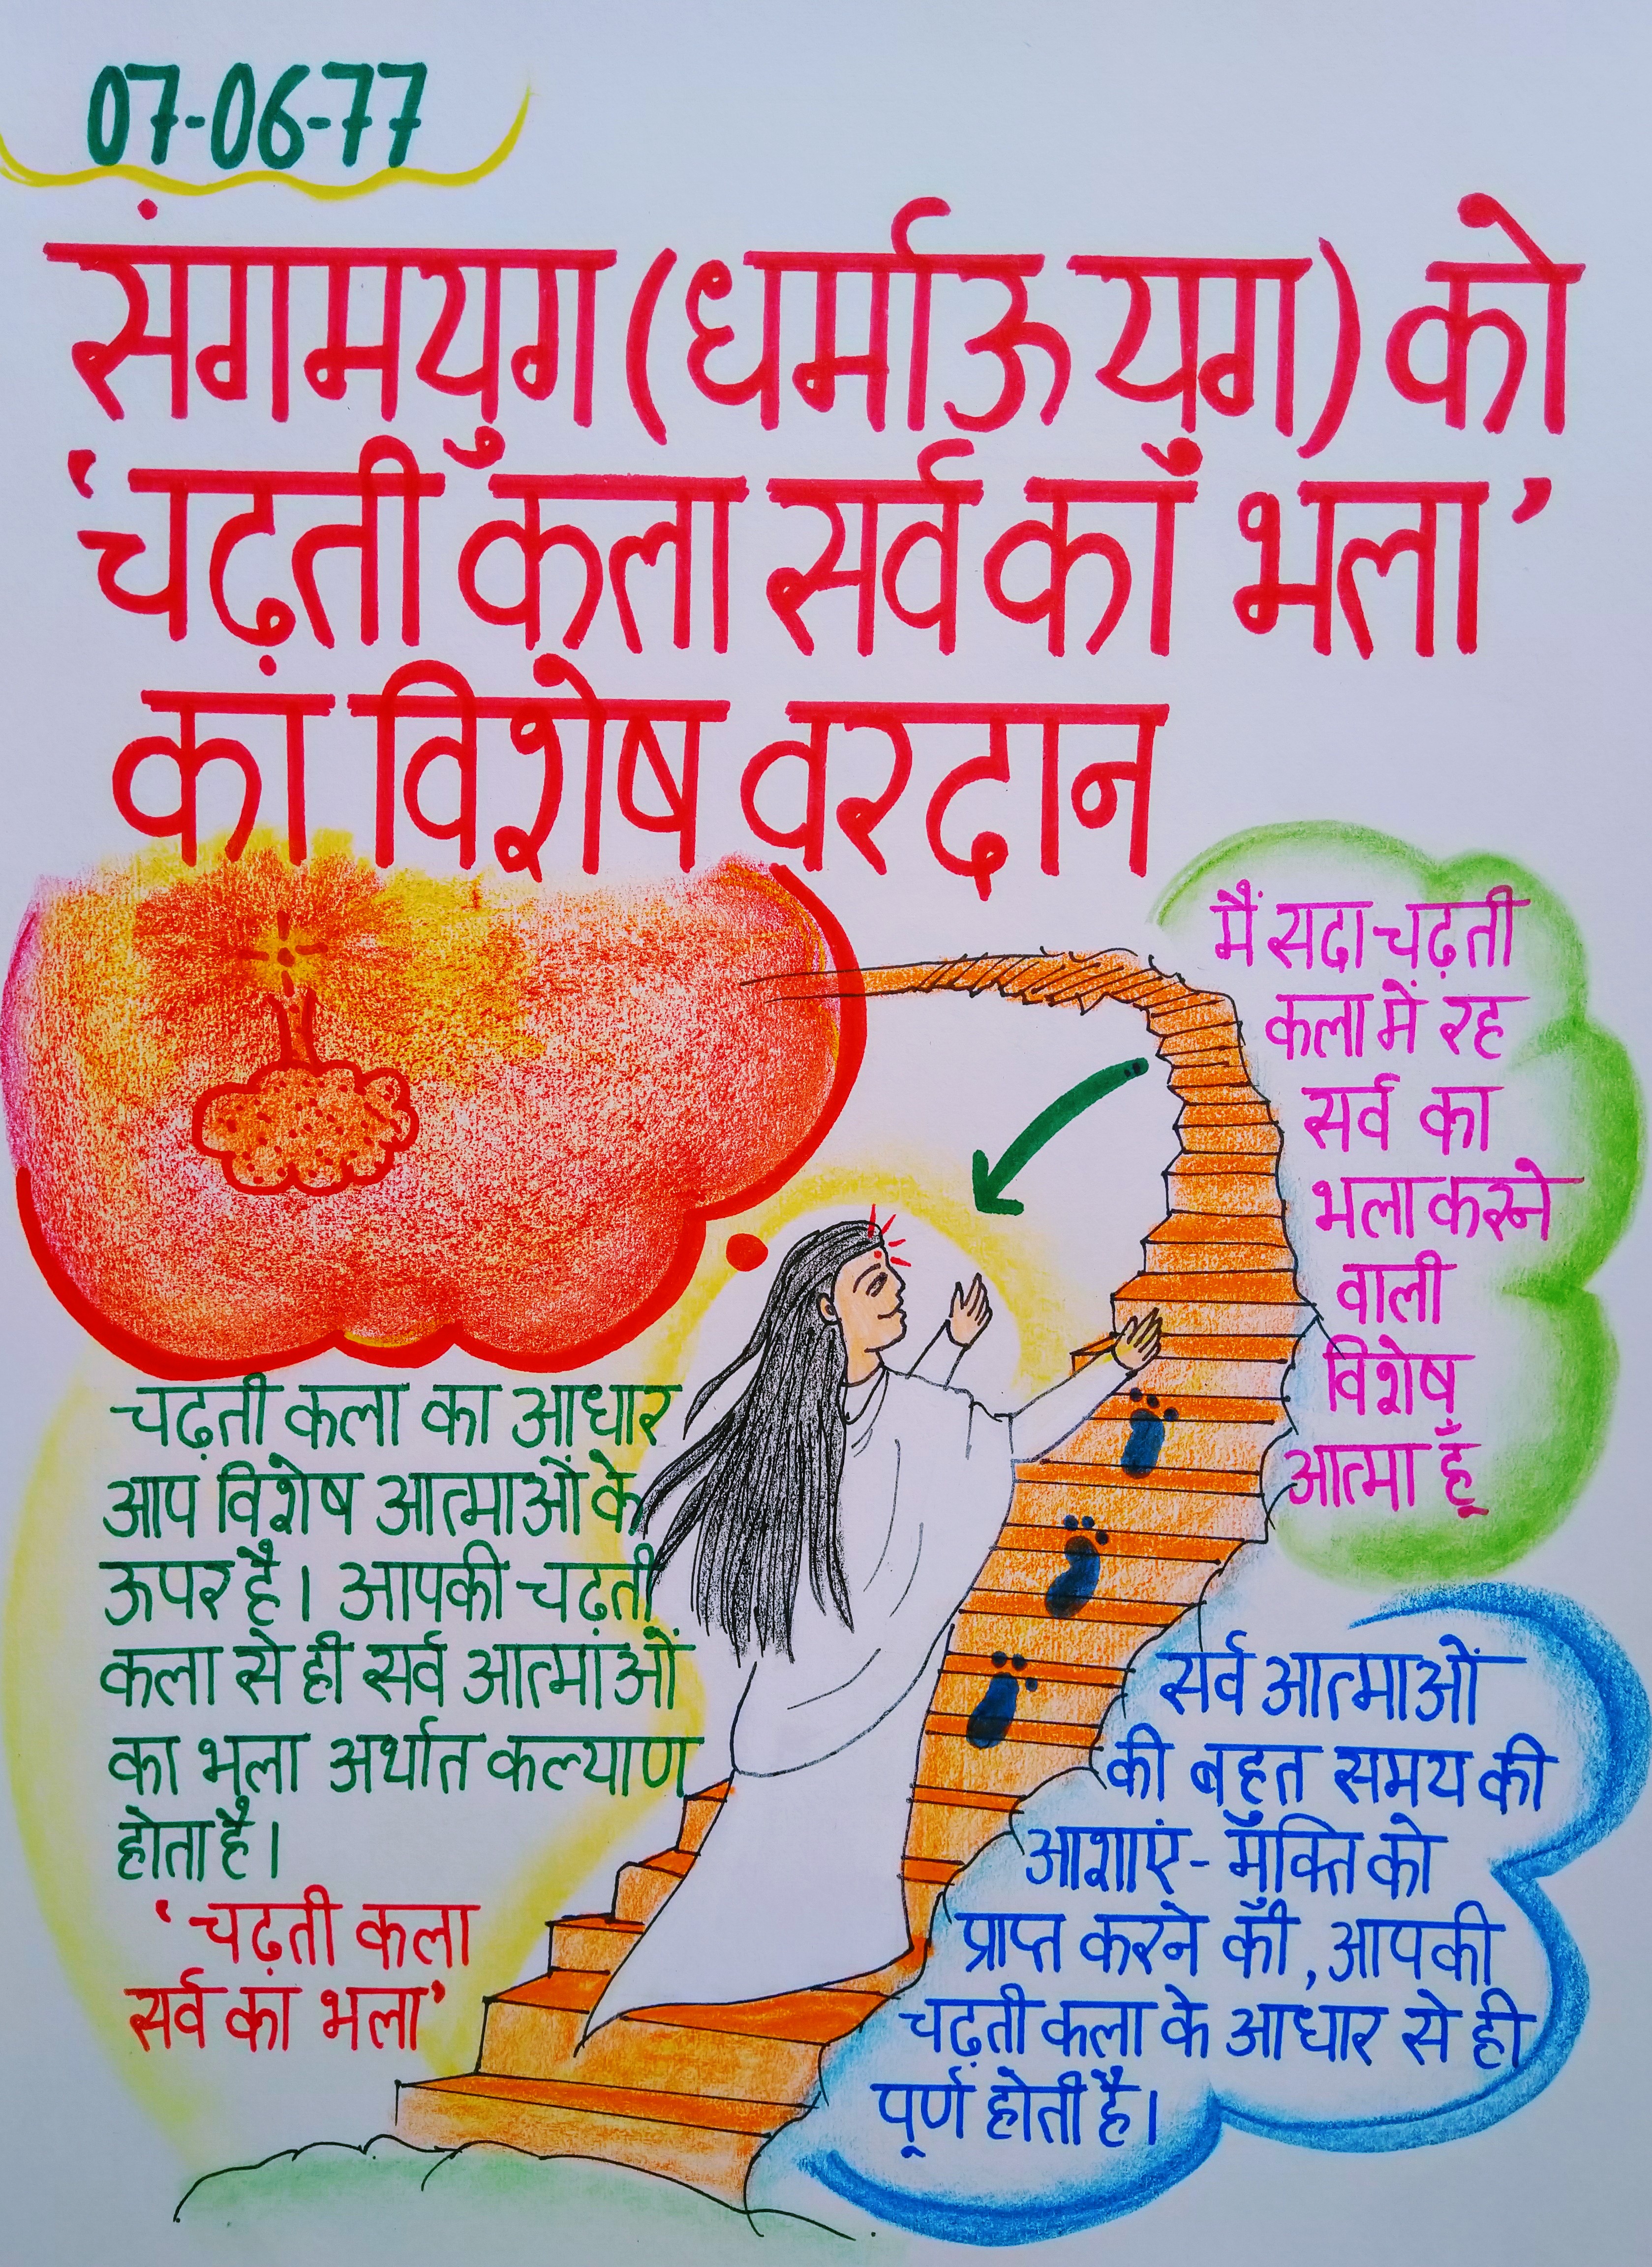 07-06-77
संगमयुग (धर्माऊ युग) को
'चढ़ती कला सर्व का भला'
का विशेष वरदान
मैं सदा चढ़ती
कला में रह
सर्व का
भला करने
वाली
विशेष
आत्मा हूँ
चढ़ती कला का आधार
आप विशेष आत्माओं के
ऊपर है। आपकी चढ़ती
कला से ही सर्व आत्माओं
का भला अर्थात कल्याण
होता है।
'चढ़ती कला
सर्व का भला'
सर्व आत्माओं
की बहुत समय की
आशाएं - मुक्ति को
प्राप्त करने की, आपकी
चढ़ती कला के आधार से ही
पूर्ण होती है।